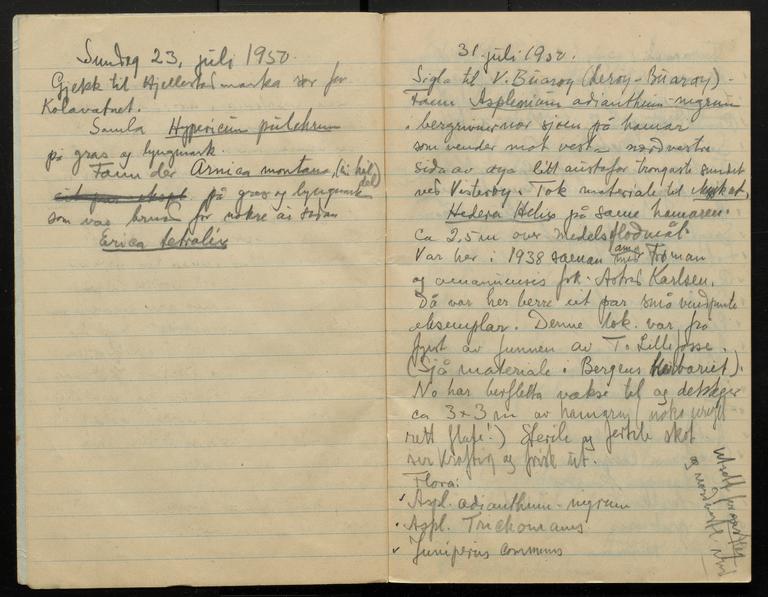 Sundag 23. juli 1950
Gjekk til Hjellestadmarka sør for
Kolavatnet.
Samla Hypericum pulchrum
på gras og lyngmark.
Fann der Arnica montana, (ein heil del)
på gras og lyngmark
som var brunnen for nokre år sidan
Erica tetralix
31. juli 1950.
Sigla til V. Buarøy (Lerøy-Buarøy) -
Fann Asplenium adianthum-nigrum
i bergrivner nær sjøen på hamar
som vender mot vest nordvestre
sida av øya litt austafor trongaste sundet
ved Vesterøy. Tok materiale til
Hedera Helix på same hamaren
ca 2,5 m over medels flodmål
Var her i 1938 saman med Frøman
og amanuensis frk. Astrid Karlsen.
Då var her berre eit par små
eksemplar. Denne lok. var frå
fyrst av funnen av T. Lillefosse.
(Sjå materiale i Bergens Herbariet).
No har bergfletta vakse til og dekkjer
ca 3 x 3 m av hamaren (noko
rett flate!) Sterile og fertile skot
ser kraftig og frisk ut.
Flora:
✓ Aspl. adianthum-nigrum
• Aspl. Trichomanes
✓ Juniperus communis